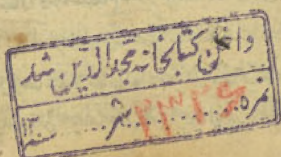 داخل کتابخانه مجدالدین شد
نمره ۲۳۲۶ شهر سنه ۱۳